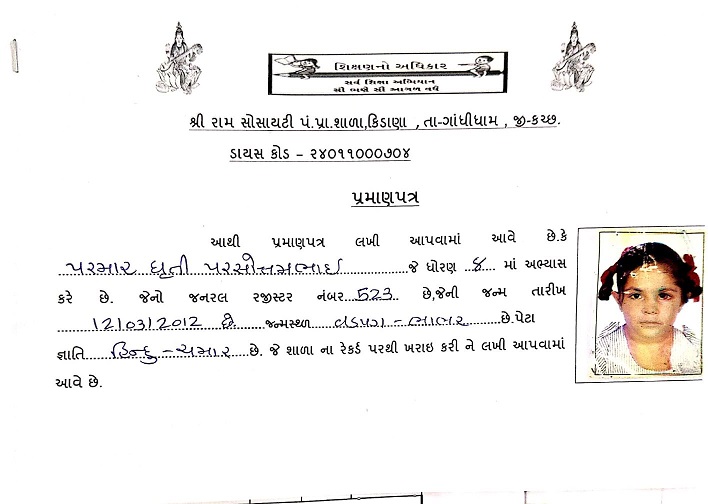 શિક્ષણનો અધિકાર
સર્વ શિક્ષા અભિયાન
સૌ ભણે સૌ આગળ વધે
શ્રી રામ સોસાયટી પં.પ્રા.શાળા,કિડાણા , તા-ગાંધીધામ , જી-કચ્છ.
ડાયસ કોડ – ૨૪૦૧૧૦૦૦૭૦૪
પ્રમાણપત્ર
આથી પ્રમાણપત્ર લખી આપવામાં આવે છે.કે
પરમાર ધ્રુતી પરસોત્તમભાઈ જે ધોરણ ૪ માં અભ્યાસ
કરે છે. જેનો જનરલ રજીસ્ટર નંબર 523 છે,જેની જન્મ તારીખ
12/03/2012 છે જન્મસ્થળ વડપગ - ભાભર છે.પેટા
જ્ઞાતિ હિન્દુ - ચમાર છે. જે શાળા ના રેકર્ડ પરથી ખરાઇ કરી ને લખી આપવામાં
આવે છે.